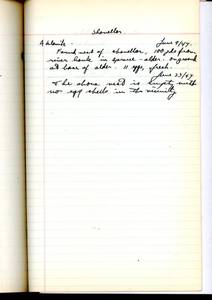 Shoveller
June 9/47.
Found nest of shoveller, 100 yds from
river bank in spruce - alder. On ground
at base of alder. 11 eggs, fresh.
June 23/47
The above nest is empty with
no egg shells in the vicinity